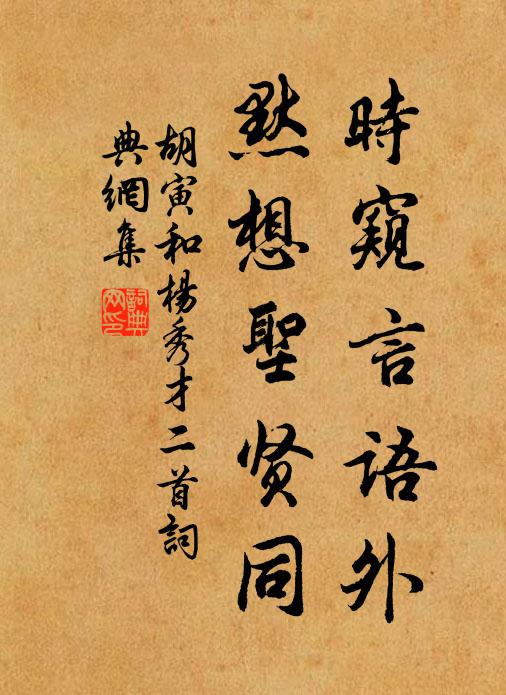 時窺言語外
默想聖贤同
胡寅和楊秀才二首詞
典網集
詞典网印